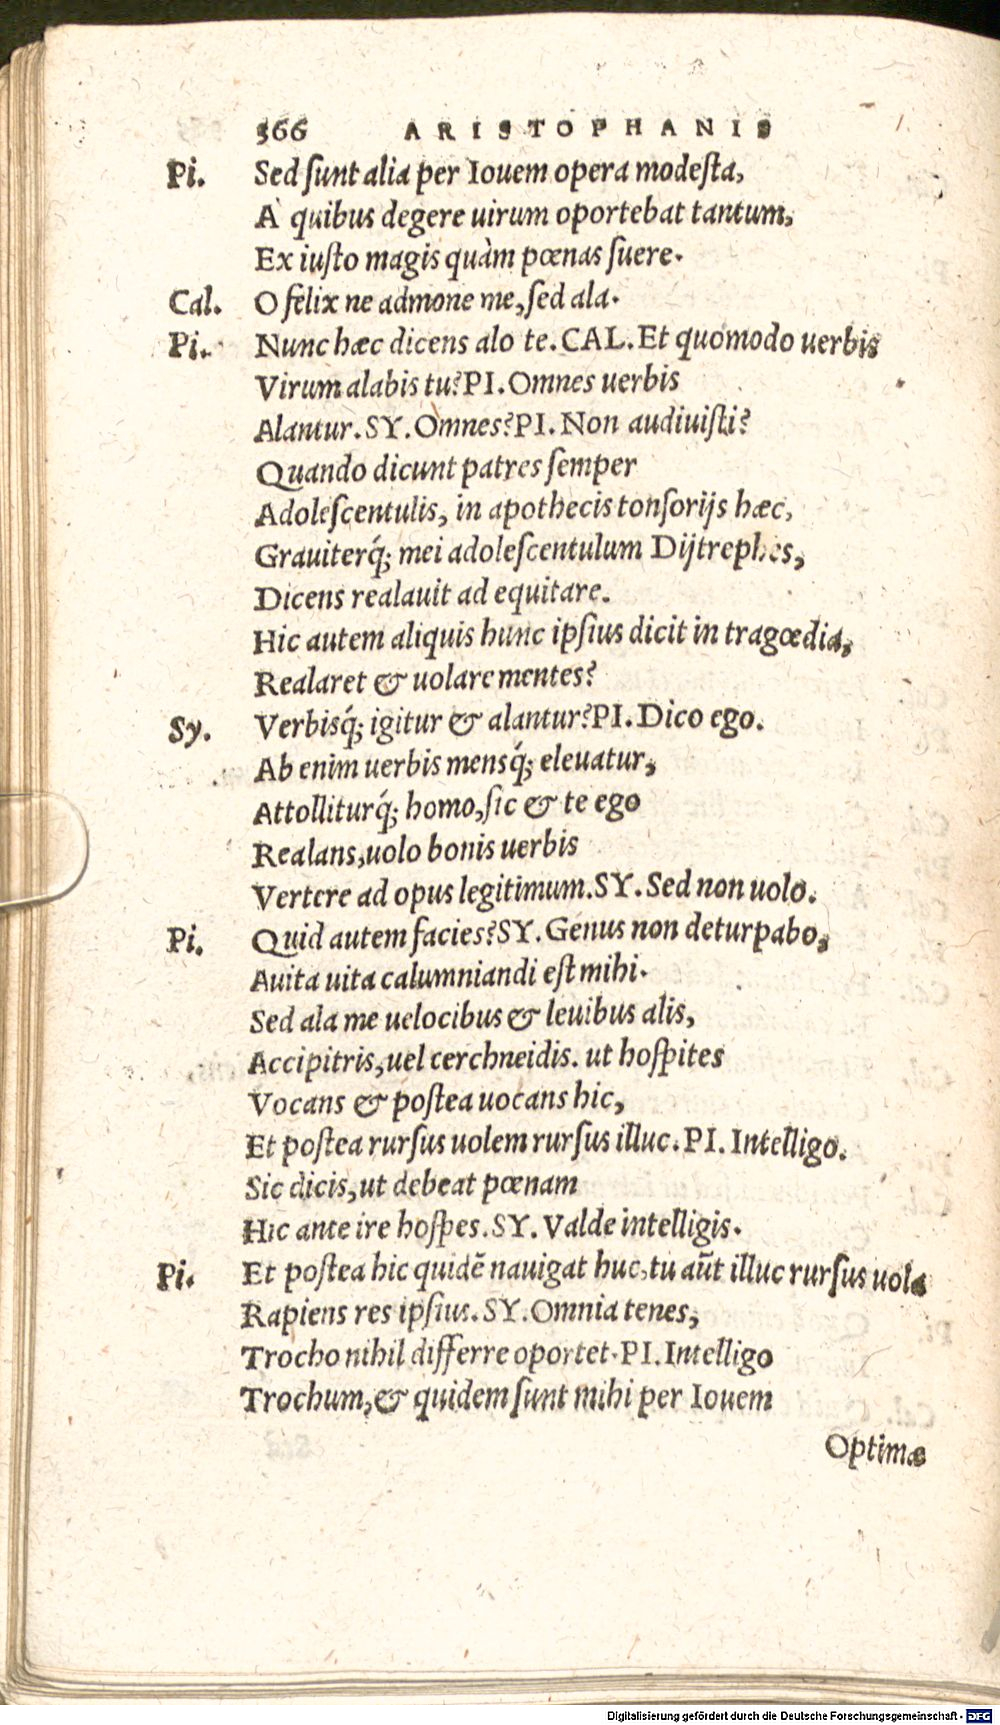 366 ARISTOPHANIS
Pi. Sed ſunt alia per Iouem opera modeſta,
A` quibus degere uirum oportebat tantum,
Ex iuſto magis quàm pœnas ſuere.
Cal. O felix ne admone me, ſed ala.
Pi. Nunc hæc dicens alo te. CAL. Et quomodo uerbis
Virum alabis tu? PI. Omnes uerbis
Alantur. SY. Omnes? PI. Non audiuiſti?
Quando dicunt patres ſemper
Adoleſcentulis, in apothecis tonſorijs hæc,
Grauiterq́; mei adoleſcentulum Dijtrephes,
Dicens realauit ad equitare.
Hic autem aliquis hunc ipſius dicit in tragœdia,
Realaret & uolare mentes?
Sy. Verbisq́; igitur & alantur? PI. Dico ego.
Ab enim uerbis mensq́; eleuatur,
Attolliturq́; homo, ſic & te ego
Realans, uolo bonis uerbis
Vertere ad opus legitimum. SY. Sed non uolo.
Pi. Quid autem facies? SY. Genus non deturpabo,
Auita uita calumniandi eſt mihi.
Sed ala me uelocibus & leuibus alis,
Accipitris, uel cerchneidis. ut hoſpites
Vocans & poſtea uocans hic,
Et poſtea rurſus uolem rurſus illuc. PI. Intelligo.
Sic dicis, ut debeat pœnam
Hic ante ire hoſpes. SY. Valde intelligis.
Pi. Et poſtea hic quidē nauigat huc, tu aūt illuc rurſus uola
Rapiens res ipſius. SY. Omnia tenes,
Trocho nihil differre oportet. PI. Intelligo
Trochum, & quidem ſunt mihi per Iouem
Optimæ
Digitalisierung gefördert durch die Deutsche Forschungsgemeinschaft - DFG